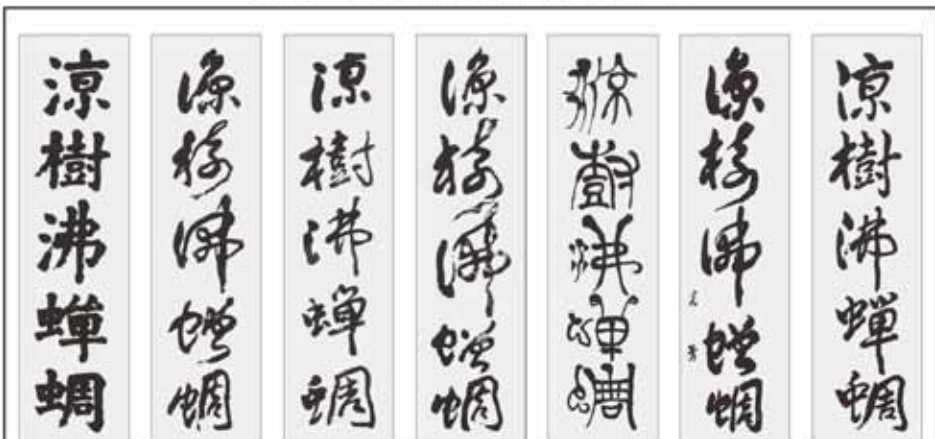 涼樹沸蟬蜩
涼樹沸蟬蜩
涼樹沸蟬蜩
涼樹沸蟬蜩
涼樹沸蟬蜩
涼樹沸蟬蜩
涼樹沸蟬蜩